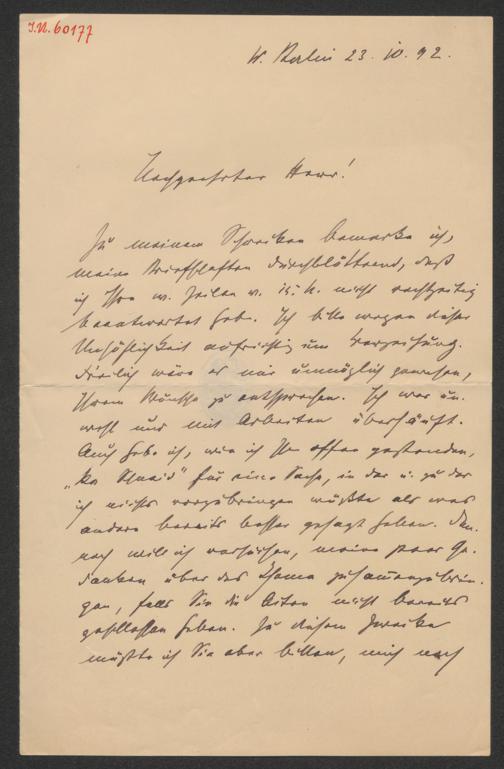 J.N. 60177
W. Berlin 23. 10. 92.
Hochgeehrter Herr!
Zu meinem Schrecken bemerke ich,
meine Briefschaften durchblätternd, daß
ich Ihre w. Zeilen v. 15. h. nicht rechtzeitig
beantwortet habe. Ich bitte wegen dieser
Unhöflichkeit aufrichtig um Verzeihung.
Freilich wäre es mir unmöglich gewesen,
Ihrem Wunsche zu entsprechen. Ich war un-
wohl und mit Arbeiten überhäuft.
Auch habe ich, wie ich Ihnen offen gestanden,
für eine Sache, in der u. zu der
ich nichts vorzubringen wüßte als was
andere bereits besser gesagt haben. Den-
noch will ich versuchen, meine paar Ge-
danken über das Thema zusammenzubrin-
gen, falls Sie die Akten nicht bereits
geschlossen haben. Zu diesem Zwecke
müßte ich Sie aber bitten, mich noch